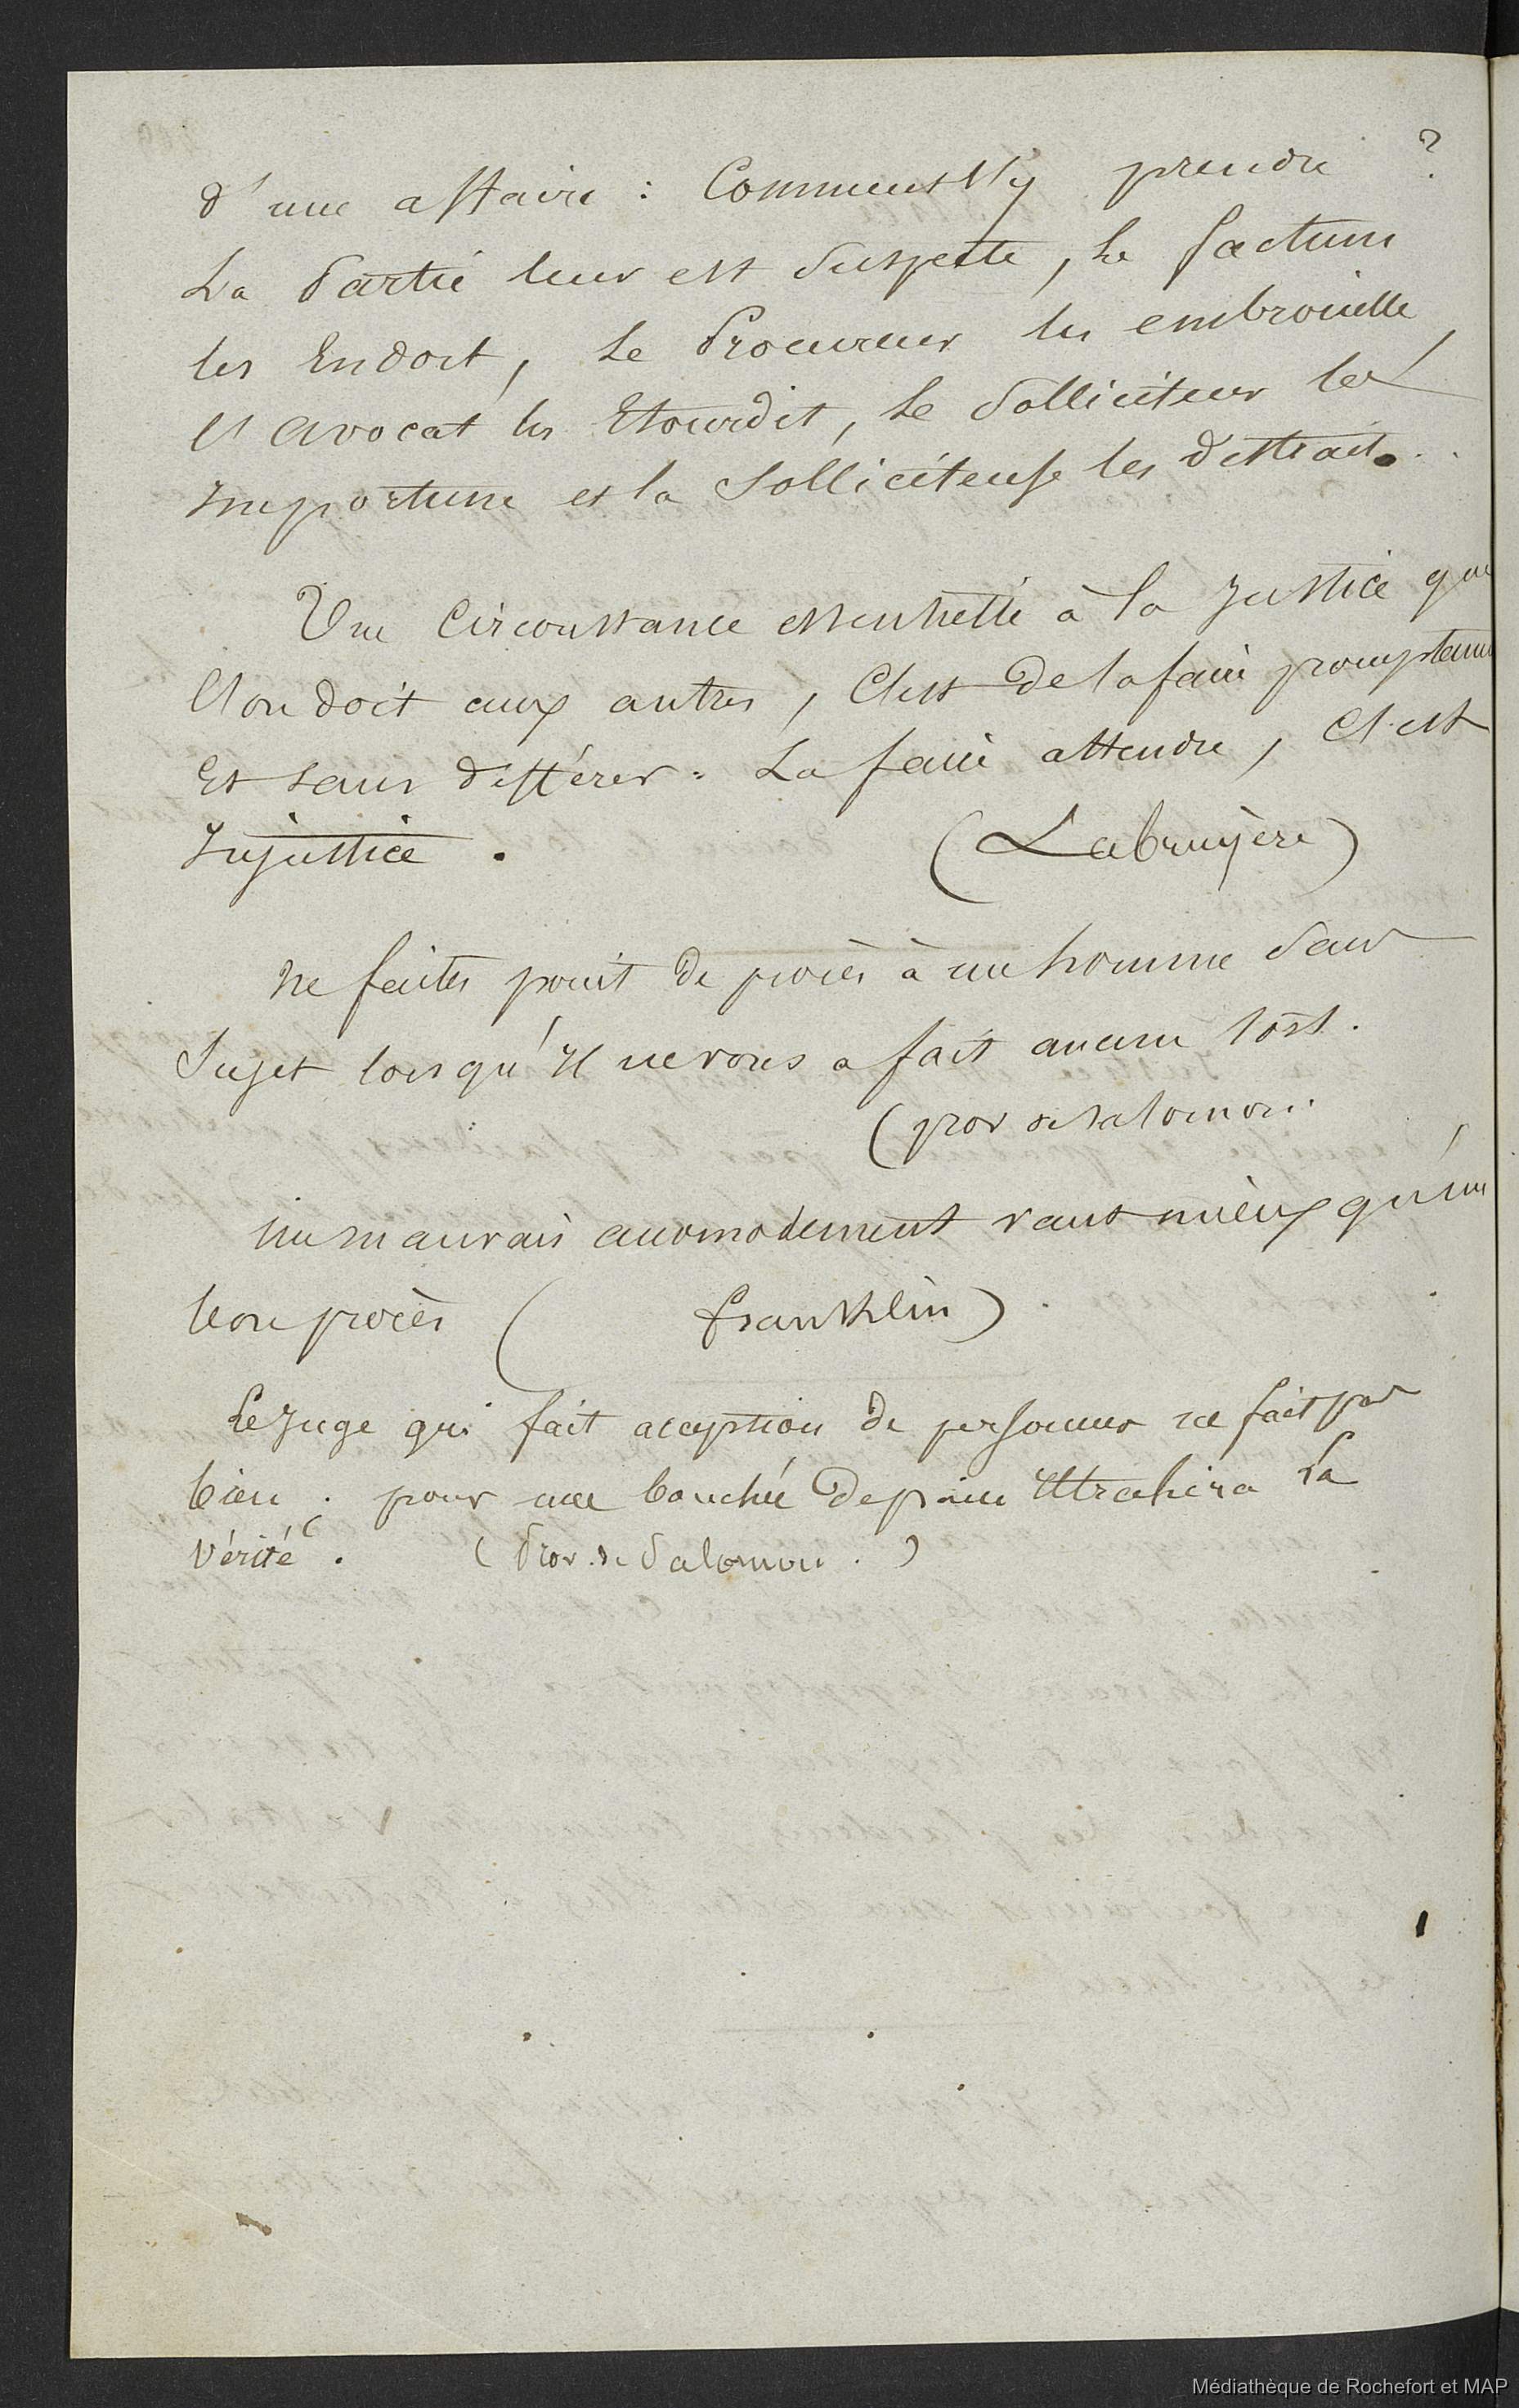 d'une affaire : Comment s'y prendre ?
La Partie leur est suspecte, le factum
les Endort, le Procureur les embrouille,
l'avocat les Etourdit, le Solliciteur les
Importune et la Solliciteuse les distrait.
Une Circonstance essentielle à la Justice que
l'on doit aux autres, C'est de la faire promptem
Et sans différer : La faire attendre, C'est
Injustice.
(Labruyère)
ne faites point de procès à un homme sans
Sujet lorsqu'Il ne vous a fait aucun tort.
(prov de Salomon.
un mauvais accomodement vaut mieux qu'un
bon procès ( franklin)
Le Juge qui fait acception de personnes ne fait pas
bien : pour une bouchée de pain Il trahira La
Vérité. (Prov. de Salomon.)
Médiathèque de Rochefort et MAP